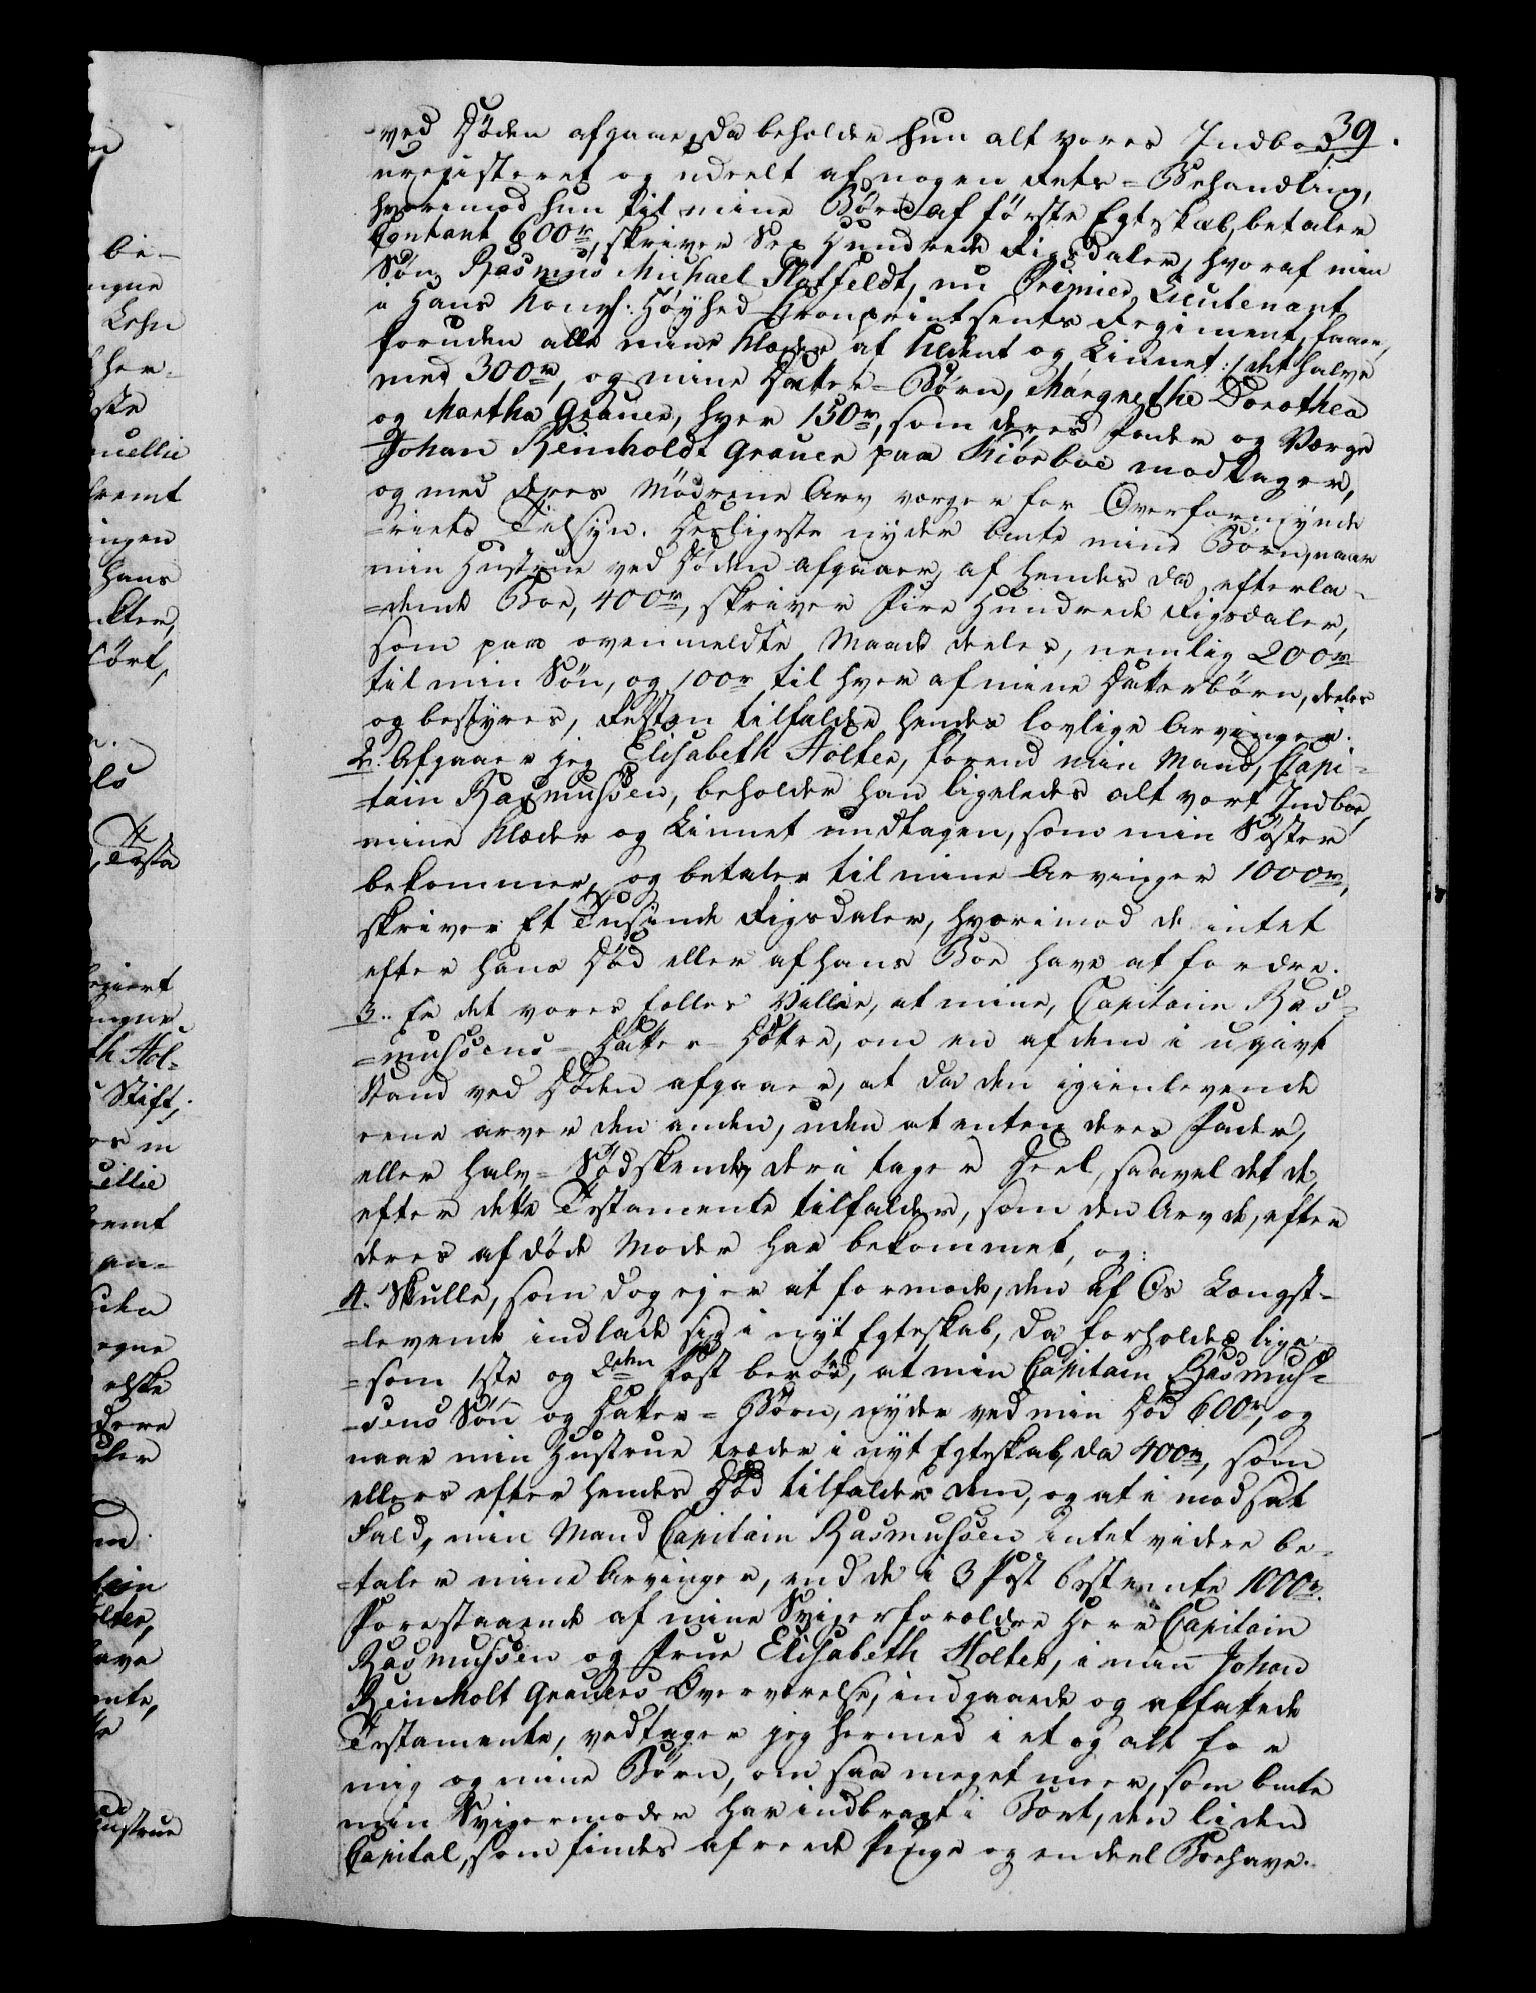 39.
ved Döden afgaaer, da beholder hun alt vores Indboe
uregisteret og udeelt af nogen Rets-Behandling,
hvorimod hun til mine Börn af förste Egteskab, betaler
Contant 600r, skriver Sex Hundrede Rigsdaler, hvoraf min
Sön Rasmus Michael Platfeldt, nu Premier Lieutenant
i Hans Kongl: Höyhed Cronprintsens Regiment, faaer,
foruden alle mine Klæder af Uldent og Linnet :/ det halve
med 300r, og mine Datter-Börn, Margrethe Dorothea
og Martha Grauer, hver 150r, som deres Fader og Værge
Johan Reinholdt Grauer paa Kiörboe modtager,
og med deres Mödrene Arv værger for Overformynde
=riets Tilsyn. Desligeste nyder bemte mine Börn, naar
min Hustrue ved Döden afgaaer, af hendes da efterla-
=dende Boe, 400r, skriver Fire Hundrede Rigsdaler,
som paa ovenmeldte Maade deeles, nemlig 200r
til min Sön, og 100r til hver af mine Datterbörn, deeles
og bestyres, Resten tilfalder hendes lovlige Arvinger.
2. Afgaaer jeg Elisabeth Holter, forend min Mand, Capi=
=tain Rasmussen, beholder han ligeledes alt vort Indboe,
mine Klæder og Linnet undtagen, som min Söster
bekommer, og betaler til mine Arvinger 1000r,
skriver Et Tusinde Rigsdaler, hvorimod de intet
efter hans Död eller af hans Boe have at fordre.
3. Er det vores fælles Villie, at mine, Capitain Ras=
=mussens Datter-Döttre, om en af dem i ugivt
Stand ved Döden afgaaer, at da den igienlevende
eene arver den anden, uden at enten deres Fader,
eller halv-Södskende, deri tager Deel, saavel det de,
efter dette Testamente tilfalder, som den Arv de, efter
deres afdöde Moder har bekommet, og:
4. Skulle, som dog ej er at formode, den af Os Længst-
=levende indlade sig i nyt Egteskab, da forholdes lige-
=som 1ste og 2den Post berörd, at min Capitain Rasmus=
=sens Sön og Datter-Börn, nyder ved min Död 600r, og
naar min Hustrue træder i nyt Egteskab, da 400r, som
ellers efter hendes Död tilfalder dem, og at i modsat
Fald, min Mand Capitain Rasmussen intet videre be-
=taler mine Arvinger, end de i 3 Post bestemte 1000r.
Forestaaende af mine Svigerforældre Herr Capitain
Rasmussen og Frue Elisabeth Holter, i min Johan
Reinholt Grauers Overværelse, indgaaede og affattede
Testamente, vedtager jeg hermed i et og alt for
mig og mine Börn, om saa meget meer, som bemte
min Svigermoder har indbragt i Boet, den liden
Capital, som findes af rede Penge og endeel Boehave.